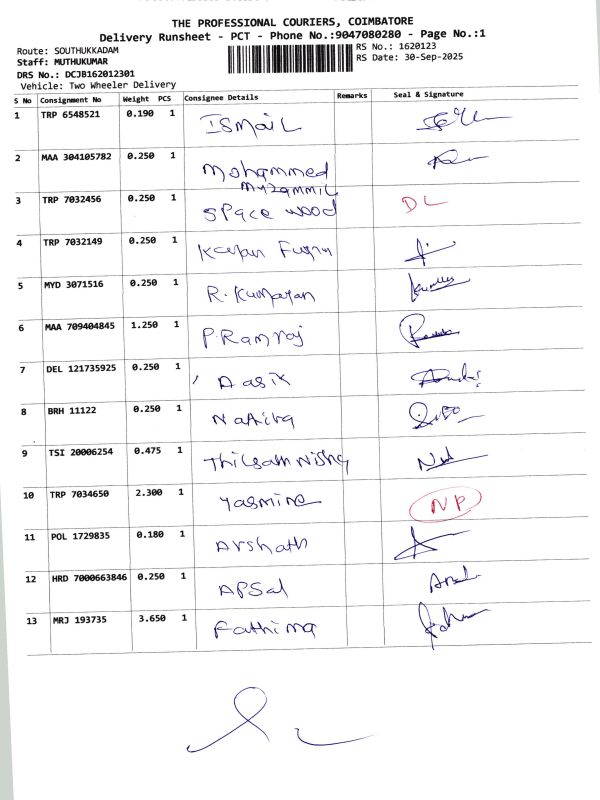 THE PROFESSIONAL COURIERS, COIMBATORE
Delivery Runsheet - PCT - Phone No.:9047080280 - Page No.:1
Route: SOUTHUKKADAM
Staff: MUTHUKUMAR
DRS No.: DCJB162012301
Vehicle: Two Wheeler Delivery
RS No.: 1620123
RS Date: 30-Sep-2025
S No Consignment No Weight PCS Consignee Details Remarks Seal & Signature
1 TRP 6548521 0.190 1 Ismail
2 MAA 304105782 0.250 1 Mohammed Muzammil
3 TRP 7032456 0.250 1 Space wood DL
4 TRP 7032149 0.250 1
5 MYD 3071516 0.250 1 R. Kumaran
6 MAA 709404845 1.250 1 P. Ramraj
7 DEL 121735925 0.250 1 Aasik
8 BRH 11122 0.250 1
9 TSI 20006254 0.475 1
10 TRP 7034650 2.300 1 Yasmine NP
11 POL 1729835 0.180 1 Arshath
12 HRD 7000663846 0.250 1 APSal
13 MRJ 193735 3.650 1 Fathima